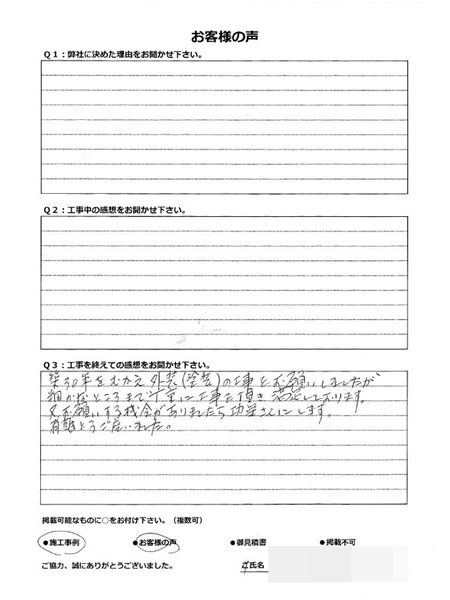 お客様の声
Q1：弊社に決めた理由をお聞かせ下さい。
Q2：工事中の感想をお聞かせ下さい。
Q3：工事を終えての感想をお聞かせ下さい。
築30年をむかえ外装(塗装)の工事をお願いしましたが
細かなところまで丁寧に工事を頂き満足しております。
又お願いする機会がありましたら功栄さんにします。
有難とうございました。
掲載可能なものに○をお付け下さい。（複数可）
●施工事例 ●お客様の声 ●御見積書 ●掲載不可
ご協力、誠にありがとうございました。 ご氏名